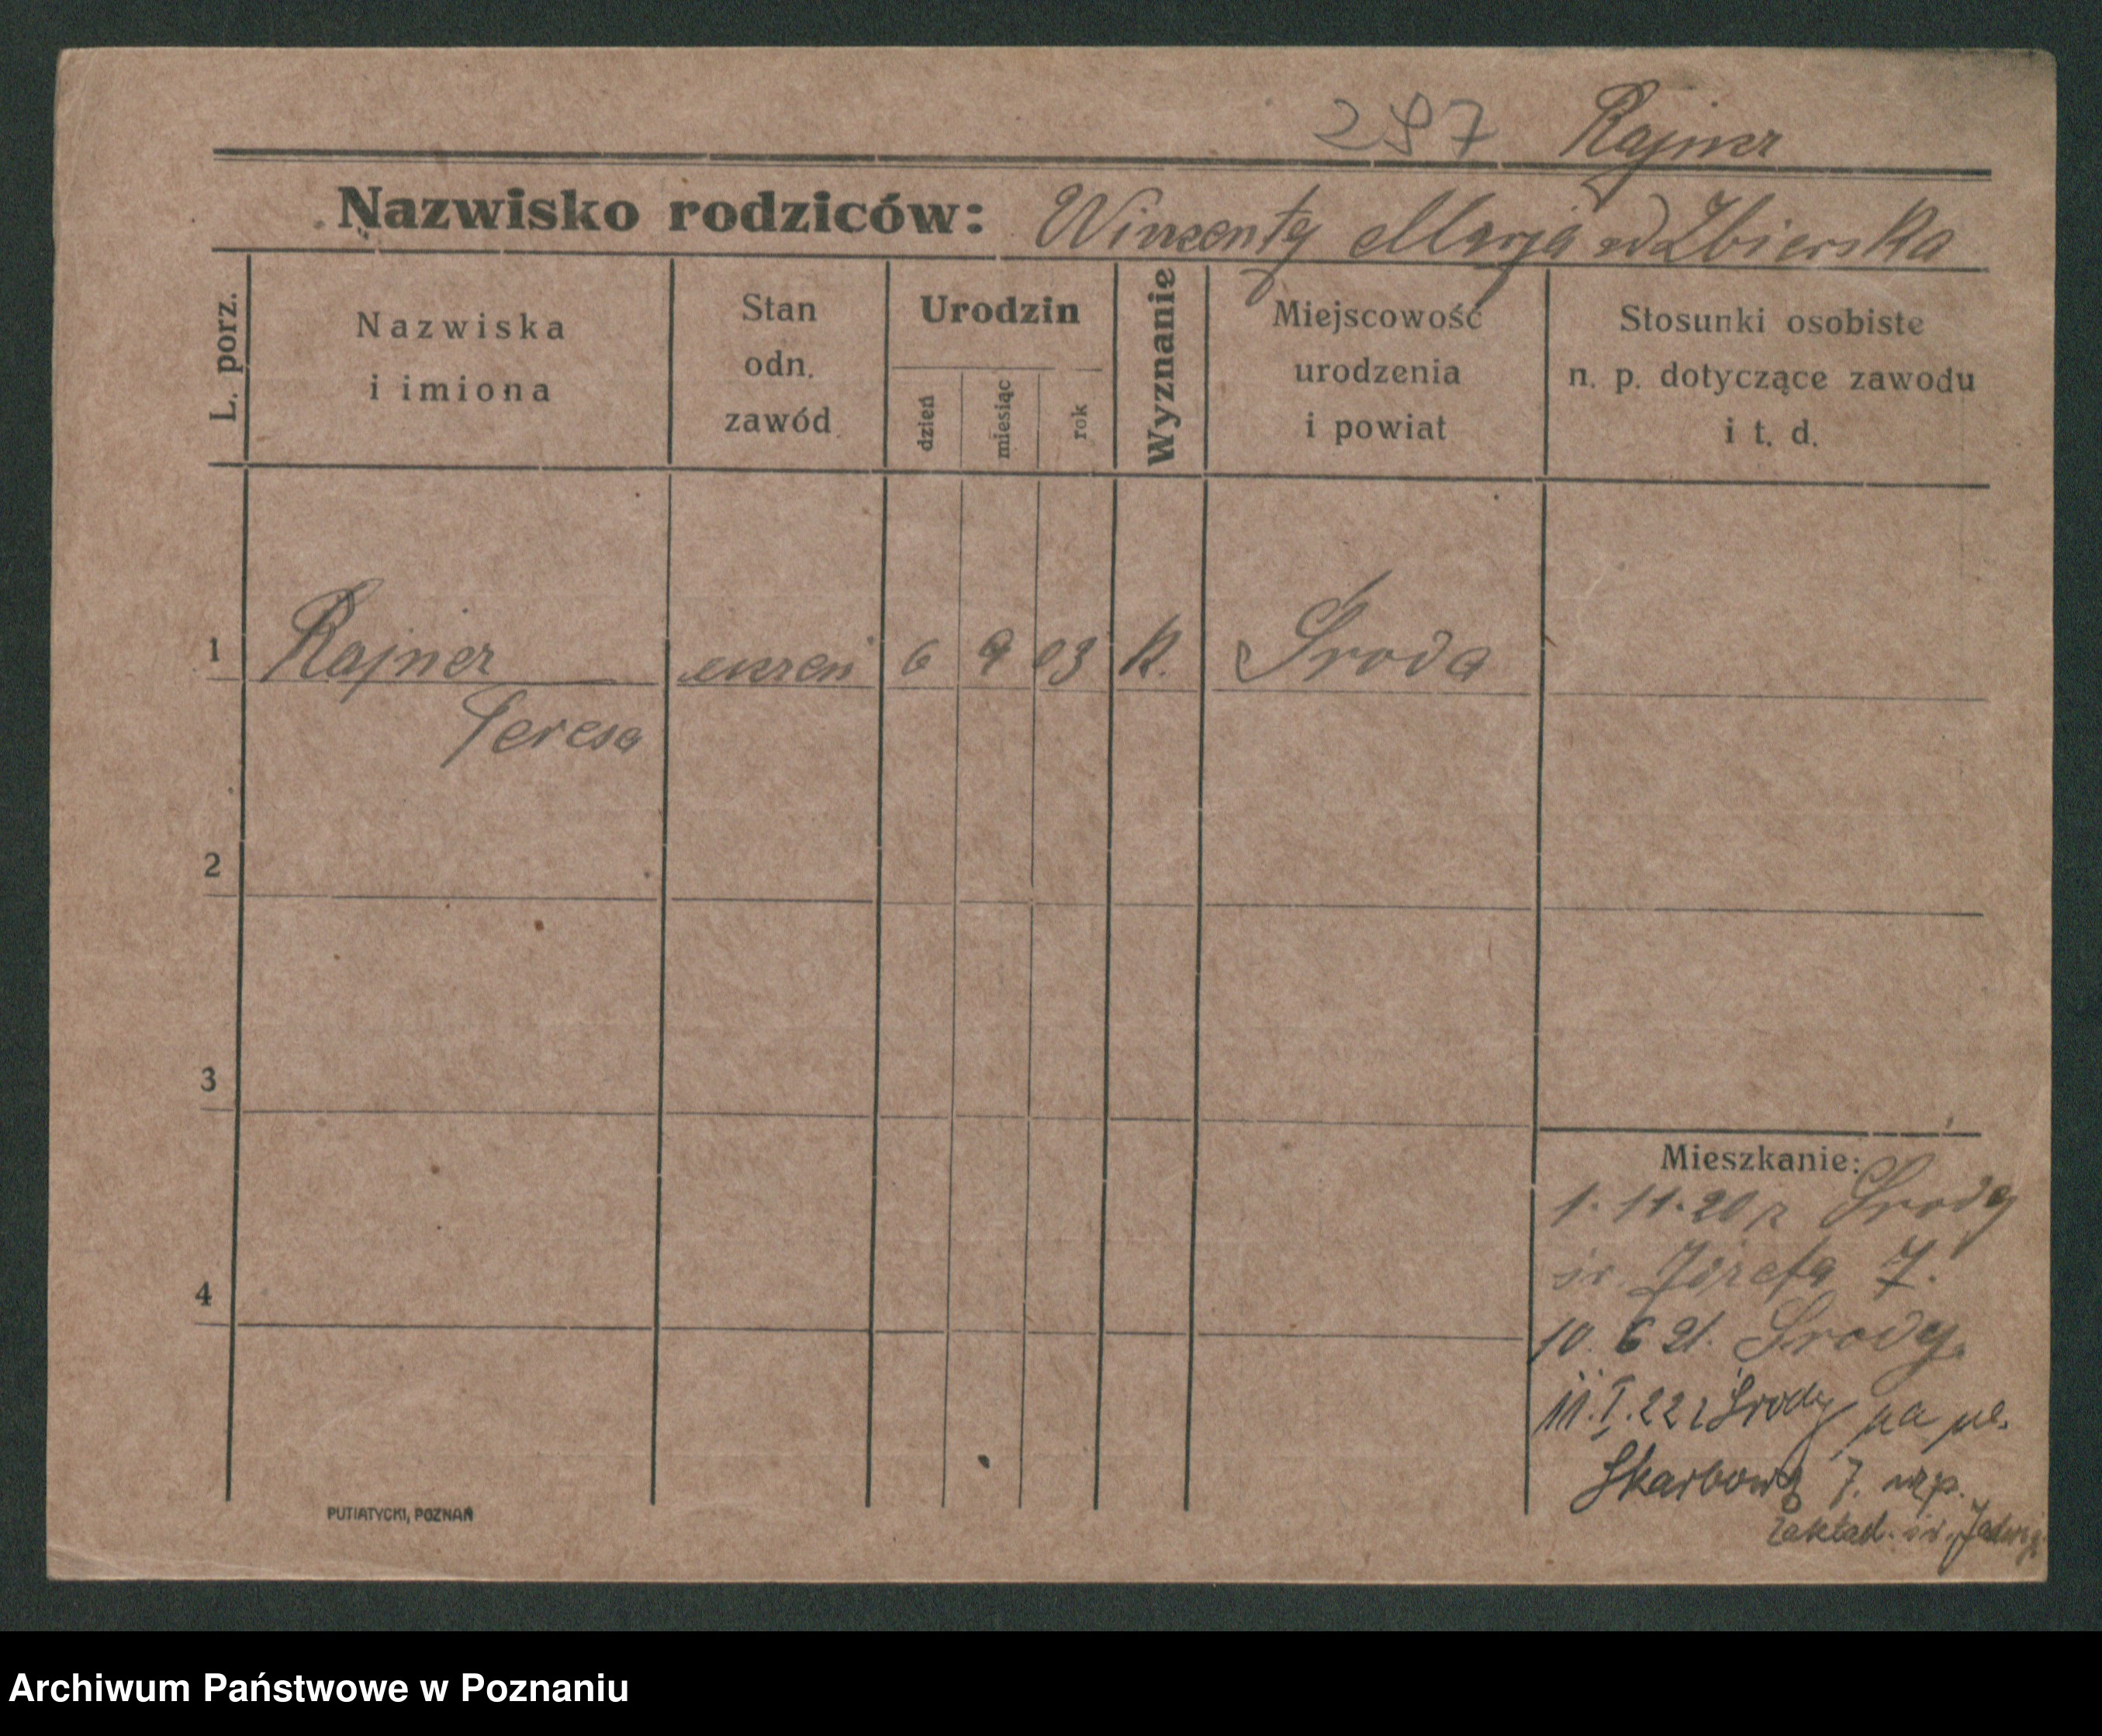 297 Rajner
Nazwisko rodziców: Wincenty Marja zd Zbierska
L. porz.
Nazwiska
i imiona
Stan
odn.
zawód
Urodzin
dzień
miesiąc
rok
Wyznanie
Miejscowość
urodzenia
i powiat
Stosunki osobiste
n. p. dotyczące zawodu
i t. d.
1 Rajner uczeń 6 9 03 K. Środa
Teresa
2
3
4
Mieszkanie:
1.11.20 z Środy
św. Józefa 7.
10.6 21. Środy.
11.I.22 z Środy na pl.
Skarbową 7. np.
Zakład. św. Jadwig.
PUTIATYCKI, POZNAŃ
Archiwum Państwowe w Poznaniu